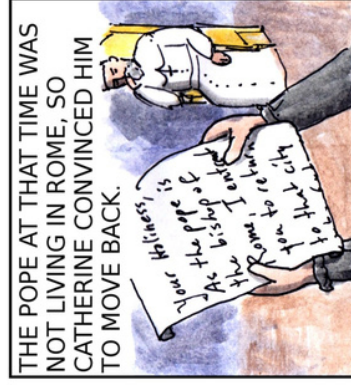 THE POPE AT THAT TIME WAS
NOT LIVING IN ROME, SO
CATHERINE CONVINCED HIM
TO MOVE BACK.
Your Holiness,
As the pope is
the bishop of
Rome, I entreat
you to return
to that city